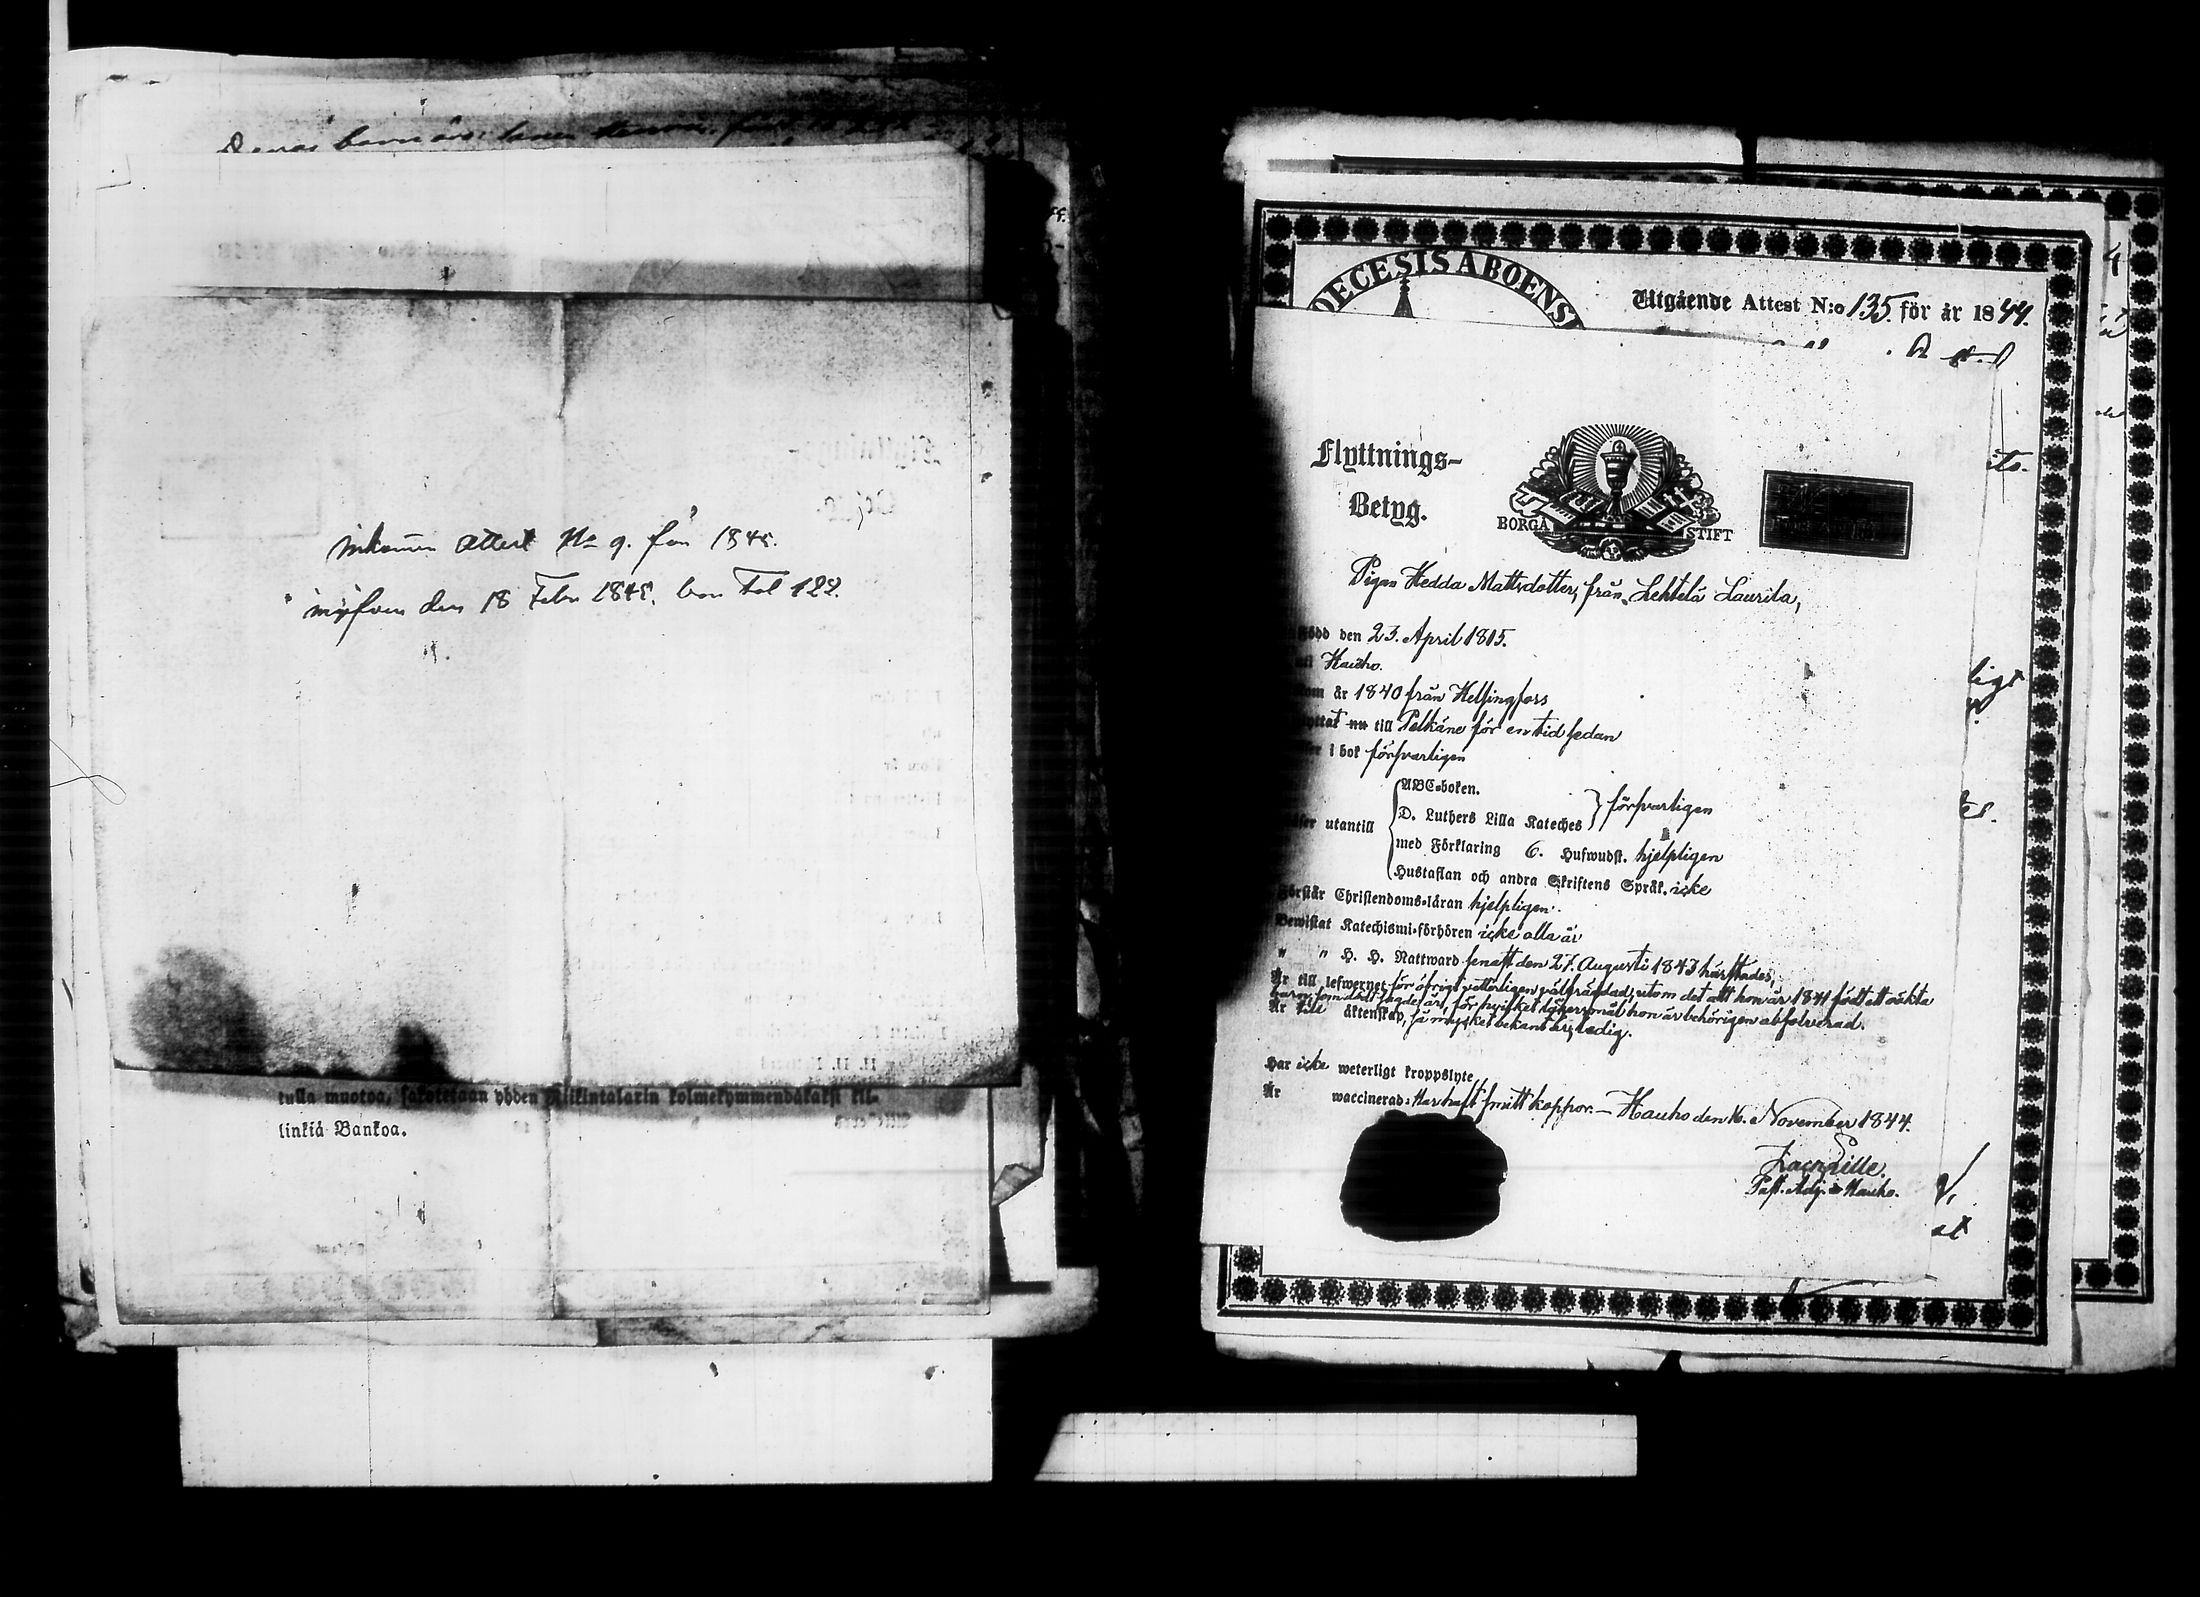 inkommen attest No 9. från 1845.
den 18 Febr 1845. Fol 122.
tulla muotoa, sakotetaan yhden Riikintalarin kolmekymmendäkaksi kil-
linkiä Bankoa.
DECESIS ABOENSI
Utgående Attest N:o 135. för år 1844.
Flyttnings-
Betyg.
BORGÅ STIFT
Pigan Hedda Mattsdotter, från Lehtelä Laurila,
född den 23. April 1815.
i Hauho.
kom år 1840 från Helsingfors
flyttat nu till Pelkäne för en tid sedan
i bok försvarligen
ABC-boken.
D. Luthers Lilla Kateches } försvarligen
läser utantill
med Förklaring 6. Hufwudst. hjelpligen
Hustaflan och andra Skriftens Språk. icke
Förstår Christendoms-läran hjelpligen.
Bewistat Katechismi-förhören icke alla år
" " H. H. Nattward senast den 27. Augusti 1843 härstädes,
Är till lefwernet för öfrigt välfräjdad, utom det att hon år 1841 födt ett oäkta
barn, som dödt, för hvilket lägersmål hon är behörigen absolverad.
Är till äktenskap, så mycket bekant är, ledig.
Har icke weterligt kroppslyte
Är waccinerad: Har haft smittkoppor. — Hauho den 16. November 1844.
Past. Adj. i Hauho.